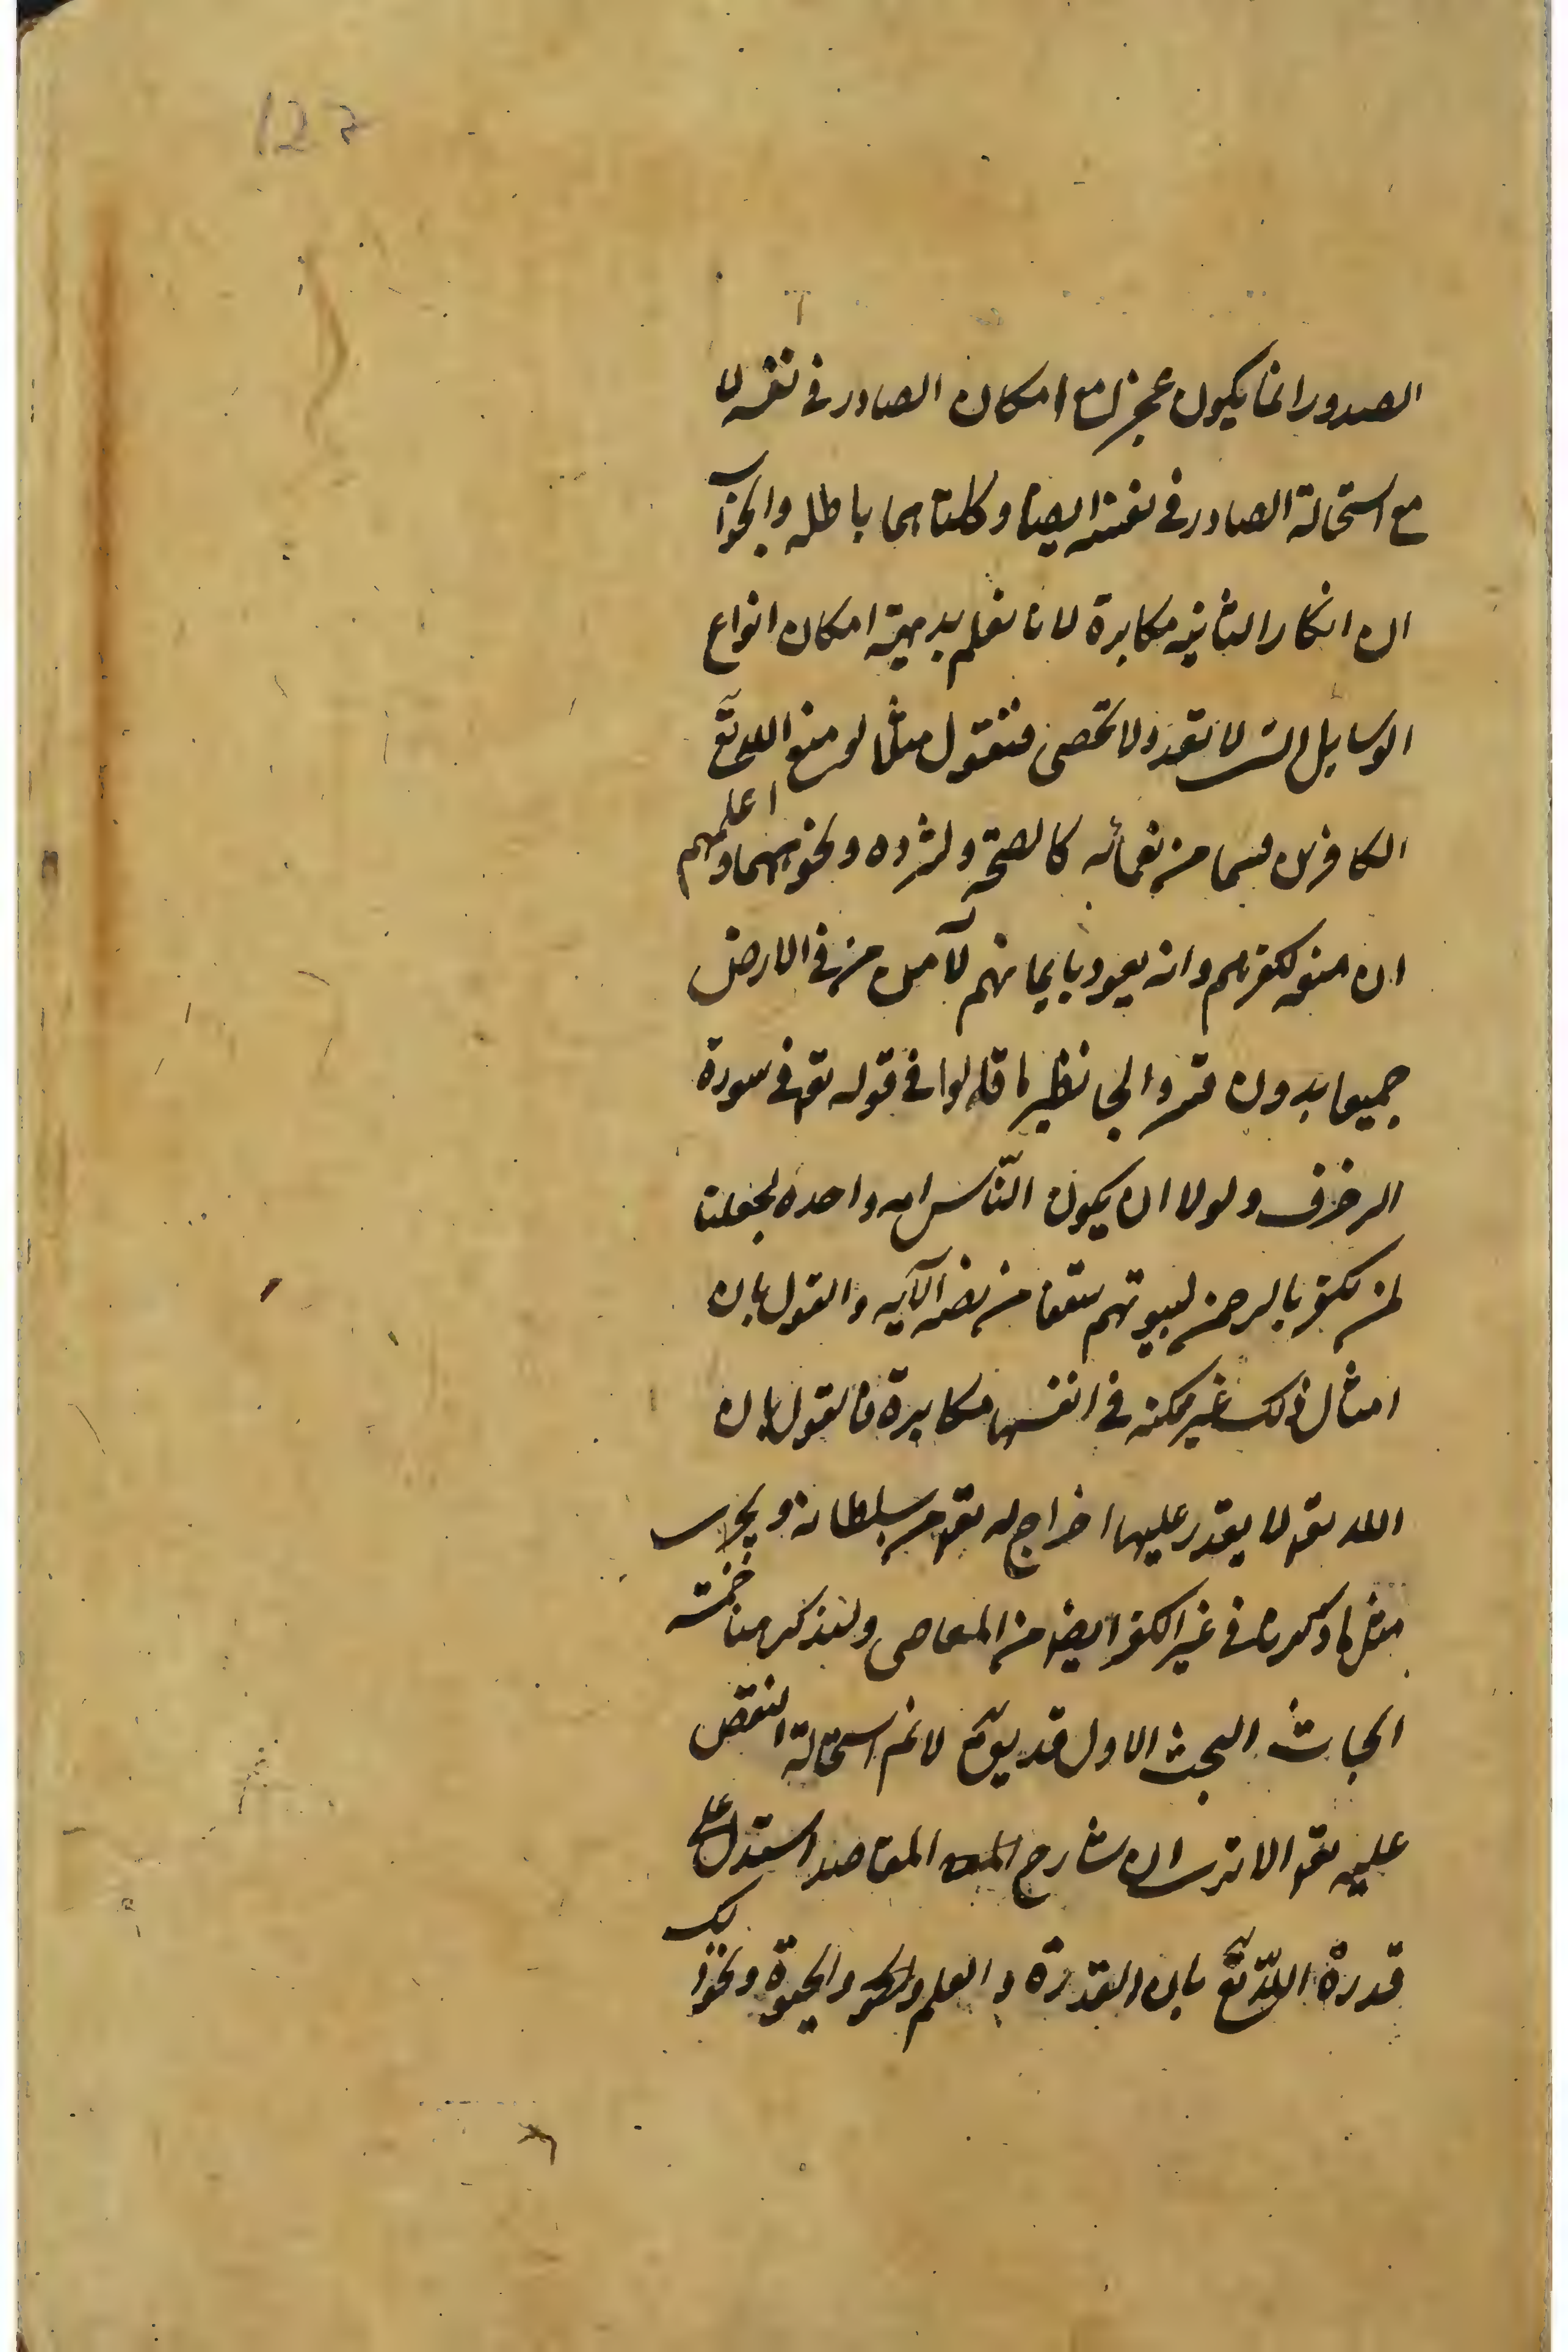 127
الصدور انما يكون عجزا مع امكان الصادر في نفسه لا
مع استحالة الصادر في نفسه ايضا وكلتاهما باطله والجواب
ان انكار الثانية مكابرة لانا نعلم بديهة امكان انواع
الوسايل التي لا تعد ولا تحصى فنقول مثلا لو منع الله تع
الكافرين قسما من نعمائه كالصحة والثروه ونحوهما واعلمهم
ان منعه لكفرهم وانه يعود بايمانهم لآمن من في الارض
جميعا بدون قسر والجا نظير ما قالوا في قوله تع في سورة
الزخرف ولولا ان يكون النّاس امه واحده لجعلنا
لمن يكفر بالرحمن لبيوتهم سقفا من فضه الآيه والقول بان
امثال ذلك غير ممكنه في انفسها مكابرة فالقول بان
الله تع لا يقدر عليها اخراج له تع من سلطانه ويجري
مثل ما ذكرناه في غير الكفر ايضا من المعاصي ولنذكر هنا خمسة
ابحاث البحث الاول قد يتوهم لا نم استحالة النقص
عليه تع الا ترى ان شارح المقاصد استدل على
قدرة اللّه تع بان القدرة والعلم والحيوة ونحو ذلك